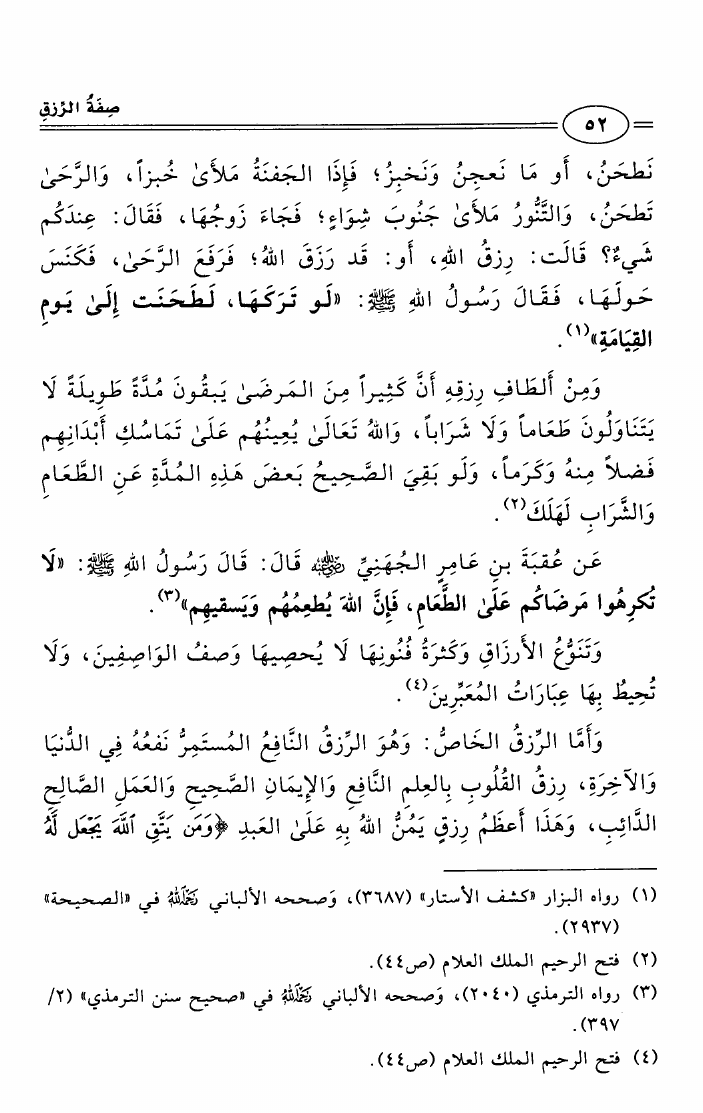 صِفَةُ الرِّزقِ
٥٢
نَطحَنُ، أَو مَا نَعجِنُ وَنَخبِزُ؛ فَإِذَا الجَفنَةُ مَلأَىٰ خُبزاً، وَالرَّحَىٰ
تَطحَنُ، وَالتَّنُّورُ مَلأَىٰ جَنُوبَ شِوَاءٍ؛ فَجَاءَ زَوجُهَا، فَقَالَ: عِندَكُم
شَيءٌ؟ قَالَت: رِزقُ اللهِ، أَو: قَد رَزَقَ اللهُ؛ فَرَفَعَ الرَّحَىٰ، فَكَنَسَ
حَولَهَا، فَقَالَ رَسُولُ اللهِ ﷺ: «لَو تَرَكَهَا، لَطَحَنَت إِلَىٰ يَومِ
القِيَامَةِ»(١).
وَمِنْ أَلطَافِ رِزقِهِ أَنَّ كَثِيراً مِنَ المَرضَىٰ يَبقُونَ مُدَّةً طَوِيلَةً لَا
يَتَنَاوَلُونَ طَعَاماً وَلَا شَرَاباً، وَاللهُ تَعَالَىٰ يُعِينُهُم عَلَىٰ تَمَاسُكِ أَبْدَانِهِم
فَضلاً مِنهُ وَكَرَماً، وَلَو بَقِيَ الصَّحِيحُ بَعضَ هَذِهِ المُدَّةِ عَنِ الطَّعَامِ
وَالشَّرَابِ لَهَلَكَ(٢).
عَن عُقبَةَ بنِ عَامِرٍ الجُهَنِيِّ رضي الله عنه قَالَ: قَالَ رَسُولُ اللهِ ﷺ: «لَا
تُكرِهُوا مَرضَاكُم عَلَىٰ الطَّعَامِ، فَإِنَّ اللهَ يُطعِمُهُم وَيَسقِيهِم»(٣).
وَتَنَوُّعُ الأَرزَاقِ وَكَثرَةُ فُنُونِهَا لَا يُحصِيهَا وَصفُ الوَاصِفِينَ، وَلَا
تُحِيطُ بِهَا عِبَارَاتُ المُعَبِّرِينَ(٤).
وَأَمَّا الرِّزقُ الخَاصُّ: وَهُوَ الرِّزقُ النَّافِعُ المُستَمِرُّ نَفعُهُ فِي الدُّنيَا
وَالآخِرَةِ، رِزقُ القُلُوبِ بِالعِلمِ النَّافِعِ وَالإِيمَانِ الصَّحِيحِ وَالعَمَلِ الصَّالِحِ
الدَّائِبِ، وَهَذَا أَعظَمُ رِزقٍ يَمُنُّ اللهُ بِهِ عَلَىٰ العَبدِ ﴿وَمَن يَتَّقِ ٱللَّهَ يَجْعَل لَّهُۥ
(١) رواه البزار «كشف الأستار» (٣٦٨٧)، وَصححه الألباني رحمه الله في «الصحيحة»
(٢٩٣٧).
(٢) فتح الرحيم الملك العلام (ص٤٤).
(٣) رواه الترمذي (٢٠٤٠)، وَصححه الألباني رحمه الله في «صحيح سنن الترمذي» (٢/
٣٩٧).
(٤) فتح الرحيم الملك العلام (ص٤٤).